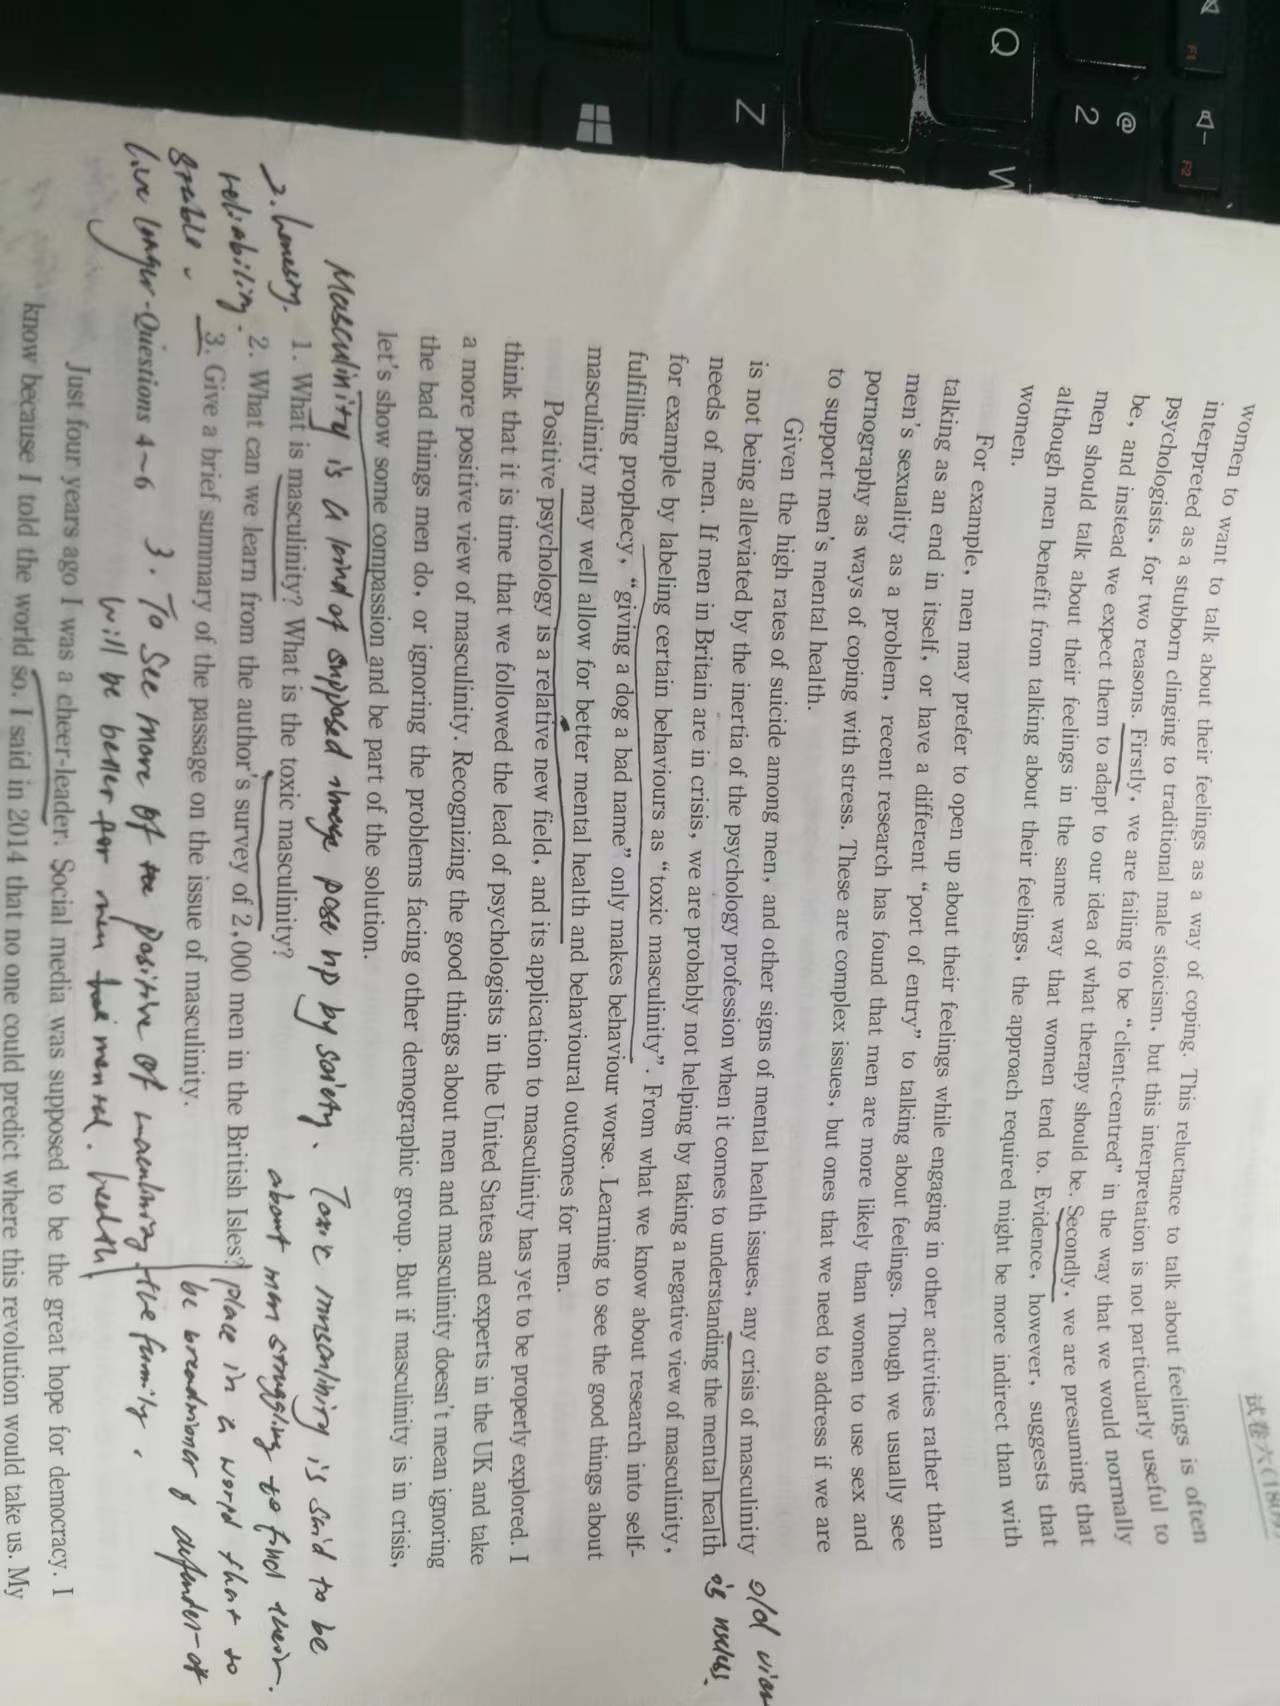 F1
F2
Q
W
@
2
Z
试卷六(1809)
women to want to talk about their feelings as a way of coping. This reluctance to talk about feelings is often
interpreted as a stubborn clinging to traditional male stoicism, but this interpretation is not particularly useful to
psychologists, for two reasons. Firstly, we are failing to be "client-centred" in the way that we would normally
be, and instead we expect them to adapt to our idea of what therapy should be. Secondly, we are presuming that
men should talk about their feelings in the same way that women tend to. Evidence, however, suggests that
although men benefit from talking about their feelings, the approach required might be more indirect than with
women.
For example, men may prefer to open up about their feelings while engaging in other activities rather than
talking as an end in itself, or have a different "port of entry" to talking about feelings. Though we usually see
men's sexuality as a problem, recent research has found that men are more likely than women to use sex and
pornography as ways of coping with stress. These are complex issues, but ones that we need to address if we are
to support men's mental health.
Given the high rates of suicide among men, and other signs of mental health issues, any crisis of masculinity
is not being alleviated by the inertia of the psychology profession when it comes to understanding the mental health
needs of men. If men in Britain are in crisis, we are probably not helping by taking a negative view of masculinity,
for example by labeling certain behaviours as "toxic masculinity". From what we know about research into self-
fulfilling prophecy, "giving a dog a bad name" only makes behaviour worse. Learning to see the good things about
masculinity may well allow for better mental health and behavioural outcomes for men.
Positive psychology is a relative new field, and its application to masculinity has yet to be properly explored. I
think that it is time that we followed the lead of psychologists in the United States and experts in the UK and take
a more positive view of masculinity. Recognizing the good things about men and masculinity doesn't mean ignoring
the bad things men do, or ignoring the problems facing other demographic group. But if masculinity is in crisis,
let's show some compassion and be part of the solution.
old view
is
Masculinity is a kind of supposed image pose up by society. Toxic masculinity is said to be
about men struggling to find their
place in a world that to
be breadwinner & defender of
the family.
1. What is masculinity? What is the toxic masculinity?
2. What can we learn from the author's survey of 2,000 men in the British Isles?
3. Give a brief summary of the passage on the issue of masculinity.
2. honesty.
reliability.
stable.
live longer
Questions 4~6
3. To see more of the positive of masculinity
will be better for men mental health
Just four years ago I was a cheer-leader. Social media was supposed to be the great hope for democracy. I
know because I told the world so. I said in 2014 that no one could predict where this revolution would take us. My